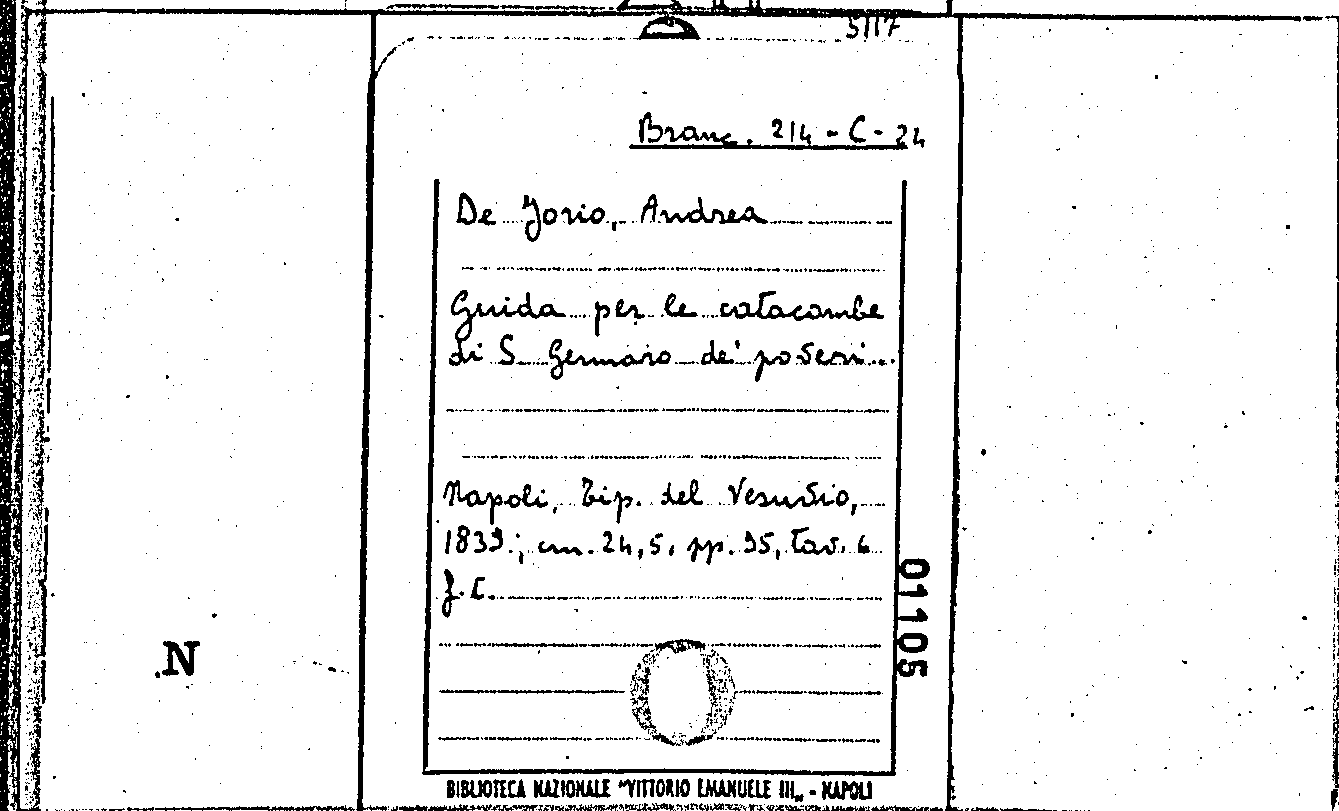 5/17
Branc. 214 - C - 24
De Jorio, Andrea
Guida per le catacombe
di S. Gennaro de' poveri...
Napoli, Tip. del Vesuvio,
1839.; cm. 24,5. pp. 95, tav. 6
f.t.
01105
N
BIBLIOTECA NAZIONALE "VITTORIO EMANUELE III„ - NAPOLI